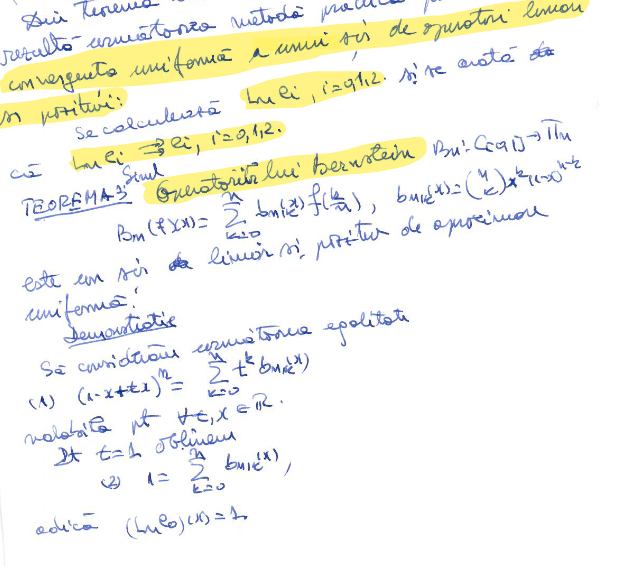 Din Teorema
rezultă următoarea metodă practică
convergența uniformă a unui șir de operatori liniari
și pozitivi:
Se calculează Lnei, i=0,1,2. și se arată
că Lnei ⇉ ei, i=0,1,2.
TEOREMA 3 Șirul Operatorilor lui Bernstein Bn: C[0,1]→Πn
Bn(f)(x)= ∑_{k=0}^{n} bn,k(x) f(k/n), bn,k(x)=(n k)x^k(1-x)^{n-k}
este un șir de liniar și pozitiv de aproximare
uniformă.
Demonstrație
Să considerăm următoarea egalitate
(1) (1-x+tx)^n = ∑_{k=0}^{n} t^k bn,k(x)
valabilă pt ∀t,x∈ℝ.
Pt t=1 obținem
(2) 1= ∑_{k=0}^{n} bn,k(x),
adică (Lne0)(x)=1